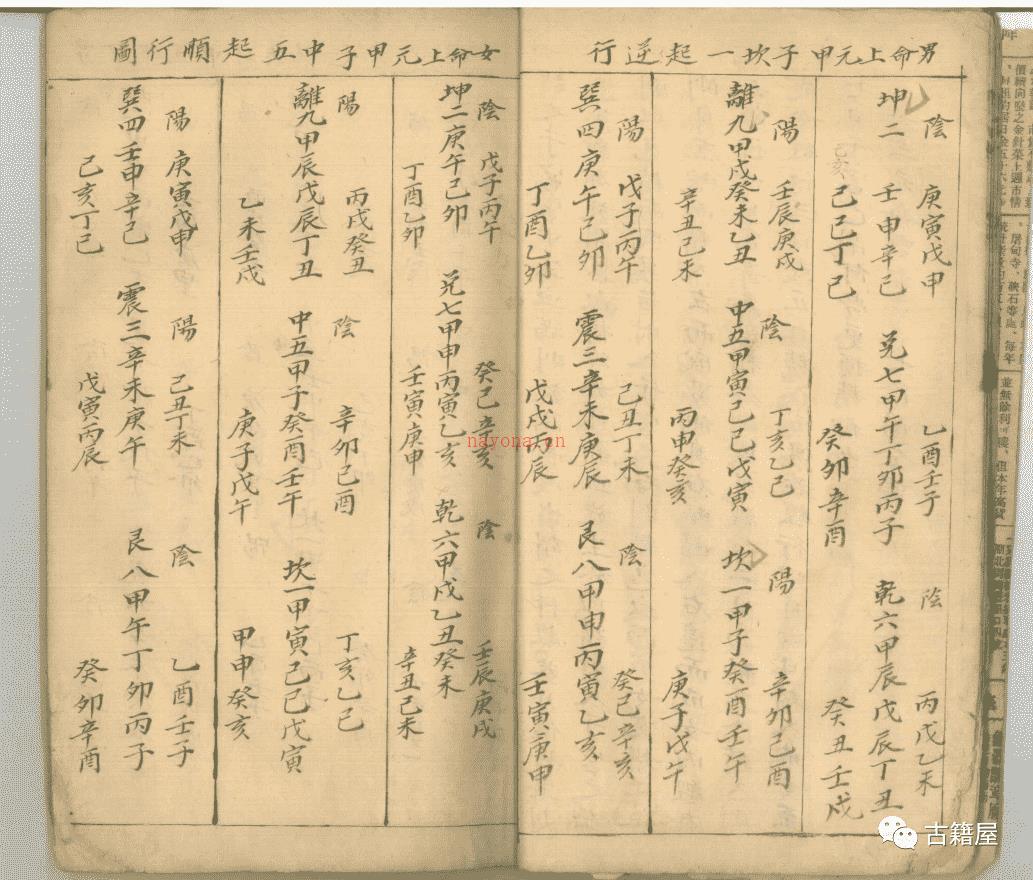 男命上元甲子坎一起逆行
陰 庚寅戊申 乙酉壬子 陰 丙戌乙未
坤二 壬申辛巳 兑七甲午丁卯丙子 乾六甲辰戊辰丁丑
己亥 己巳丁巳 癸卯辛酉 癸丑壬戌
陽 壬辰庚戌 陰 丁亥乙巳 陽 辛卯己酉
離九甲戌癸未乙丑 中五甲寅己巳戊寅 坎一甲子癸酉壬午
辛丑己未 丙甲癸亥 庚子戊午
陽 戊子丙午 己丑丁未 陰 癸巳辛亥
巽四庚午己卯 震三辛未庚辰 艮八甲申丙寅乙亥
丁酉乙卯 戊戌丙辰 壬寅庚申
女命上元甲子中五起順行圖
陰 戊子丙午 癸巳辛亥 陰 壬辰庚戌
坤二庚午己卯 兑七甲申丙寅乙亥 乾六甲戌乙丑癸未
丁酉乙卯 壬寅庚申 辛丑己未
陽 丙戌癸丑 陰 辛卯己酉 丁亥乙巳
離九甲辰戊辰丁丑 中五甲子癸酉壬午 坎一甲寅己巳戊寅
乙未壬戌 庚子戊午 甲申癸亥
陽 庚寅戊申 陽 己丑丁未 陰 乙酉壬子
巽四壬申辛巳 震三辛未庚午 艮八甲午丁卯丙子
己亥丁巳 戊寅丙辰 癸卯辛酉
nayona.cn
古籍屋